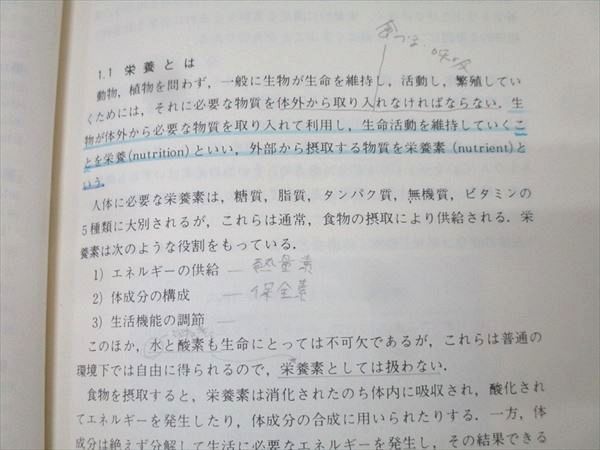 1.1 栄養とは
動物，植物を問わず，一般に生物が生命を維持し，活動し，繁殖してい
くためには，それに必要な物質を体外から取り入れなければならない．生
物が体外から必要な物質を取り入れて利用し，生命活動を維持していくこ
とを栄養(nutrition)といい，外部から摂取する物質を栄養素(nutrient)と
いう．
人体に必要な栄養素は，糖質，脂質，タンパク質，無機質，ビタミンの
5種類に大別されるが，これらは通常，食物の摂取により供給される．栄
養素は次のような役割をもっている．
1) エネルギーの供給 — 熱量素
2) 体成分の構成 — 保全素
3) 生活機能の調節 —
このほか，水と酸素も生命にとっては不可欠であるが，これらは普通の
環境下では自由に得られるので，栄養素としては扱わない．
食物を摂取すると，栄養素は消化されたのち体内に吸収され，酸化され
てエネルギーを発生したり，体成分の合成に用いられたりする．一方，体
成分は絶えず分解して生活に必要なエネルギーを発生し，その結果できる